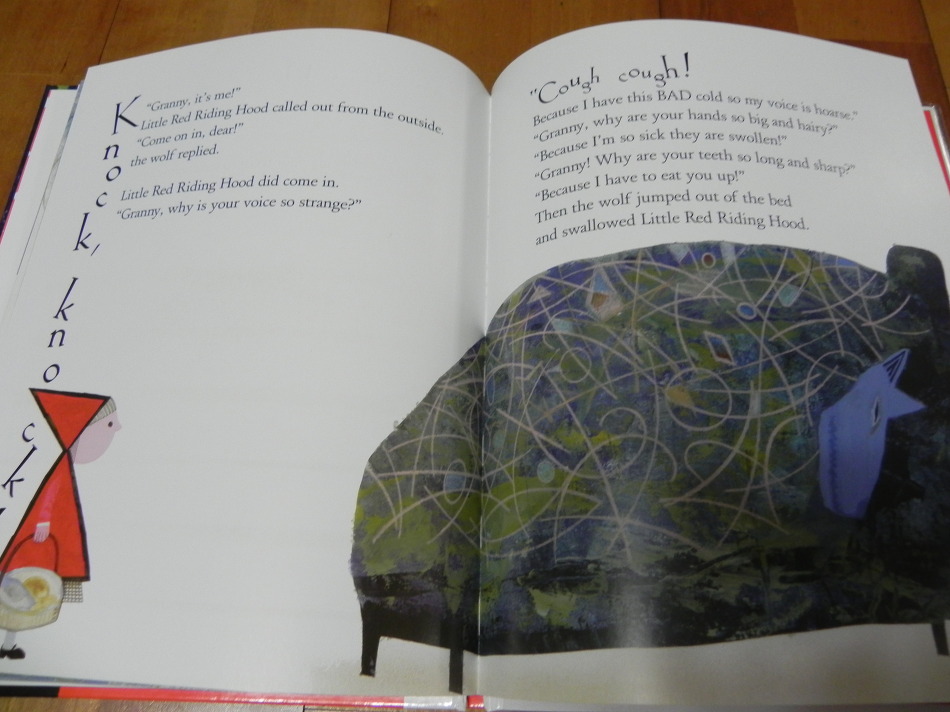 Knock, knock
"Granny, it's me!"
Little Red Riding Hood called out from the outside.
"Come on in, dear!"
the wolf replied.
Little Red Riding Hood did come in.
"Granny, why is your voice so strange?"
"Cough cough!
Because I have this BAD cold so my voice is hoarse."
"Granny, why are your hands so big and hairy?"
"Because I'm so sick they are swollen!"
"Granny! Why are your teeth so long and sharp?"
"Because I have to eat you up!"
Then the wolf jumped out of the bed
and swallowed Little Red Riding Hood.